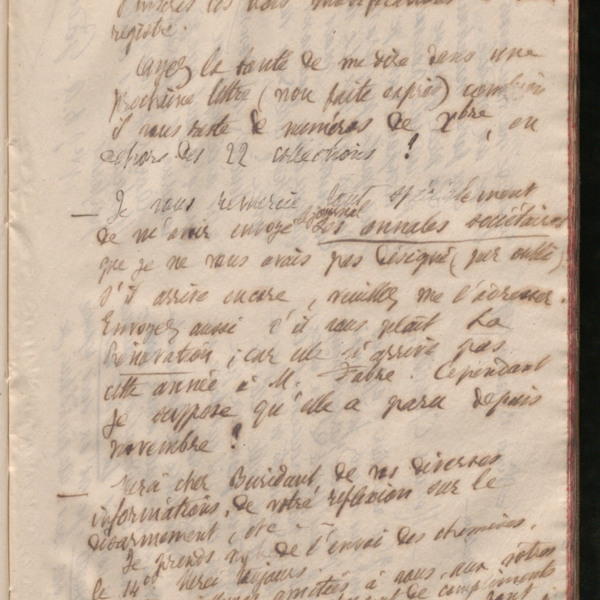 registre.
Ayez la bonté de me dire dans une
prochaine lettre (non faite exprès) combien
il vous reste de numéros de Xbre, en
dehors des 22 collections ?
— Je vous remercie tout spécialement
de m'avoir envoyé le journal des annales sociétaires
que je ne vous avais pas désigné (par oubli)
S'il arrive encore, veuillez me l'adresser.
Envoyez aussi s'il vous plaît La
Rénovation ; car elle n'arrive pas
cette année à M. Fabre. Cependant
je suppose qu'elle a paru depuis
novembre ?
— Merci cher Buridant, de vos diverses
informations, de votre réflexion sur le
désarmement, etc.
Je prends de l'envoi des chemises.
le 14 Merci toujours.
amitiés à vous, aux vôtres
de compliments